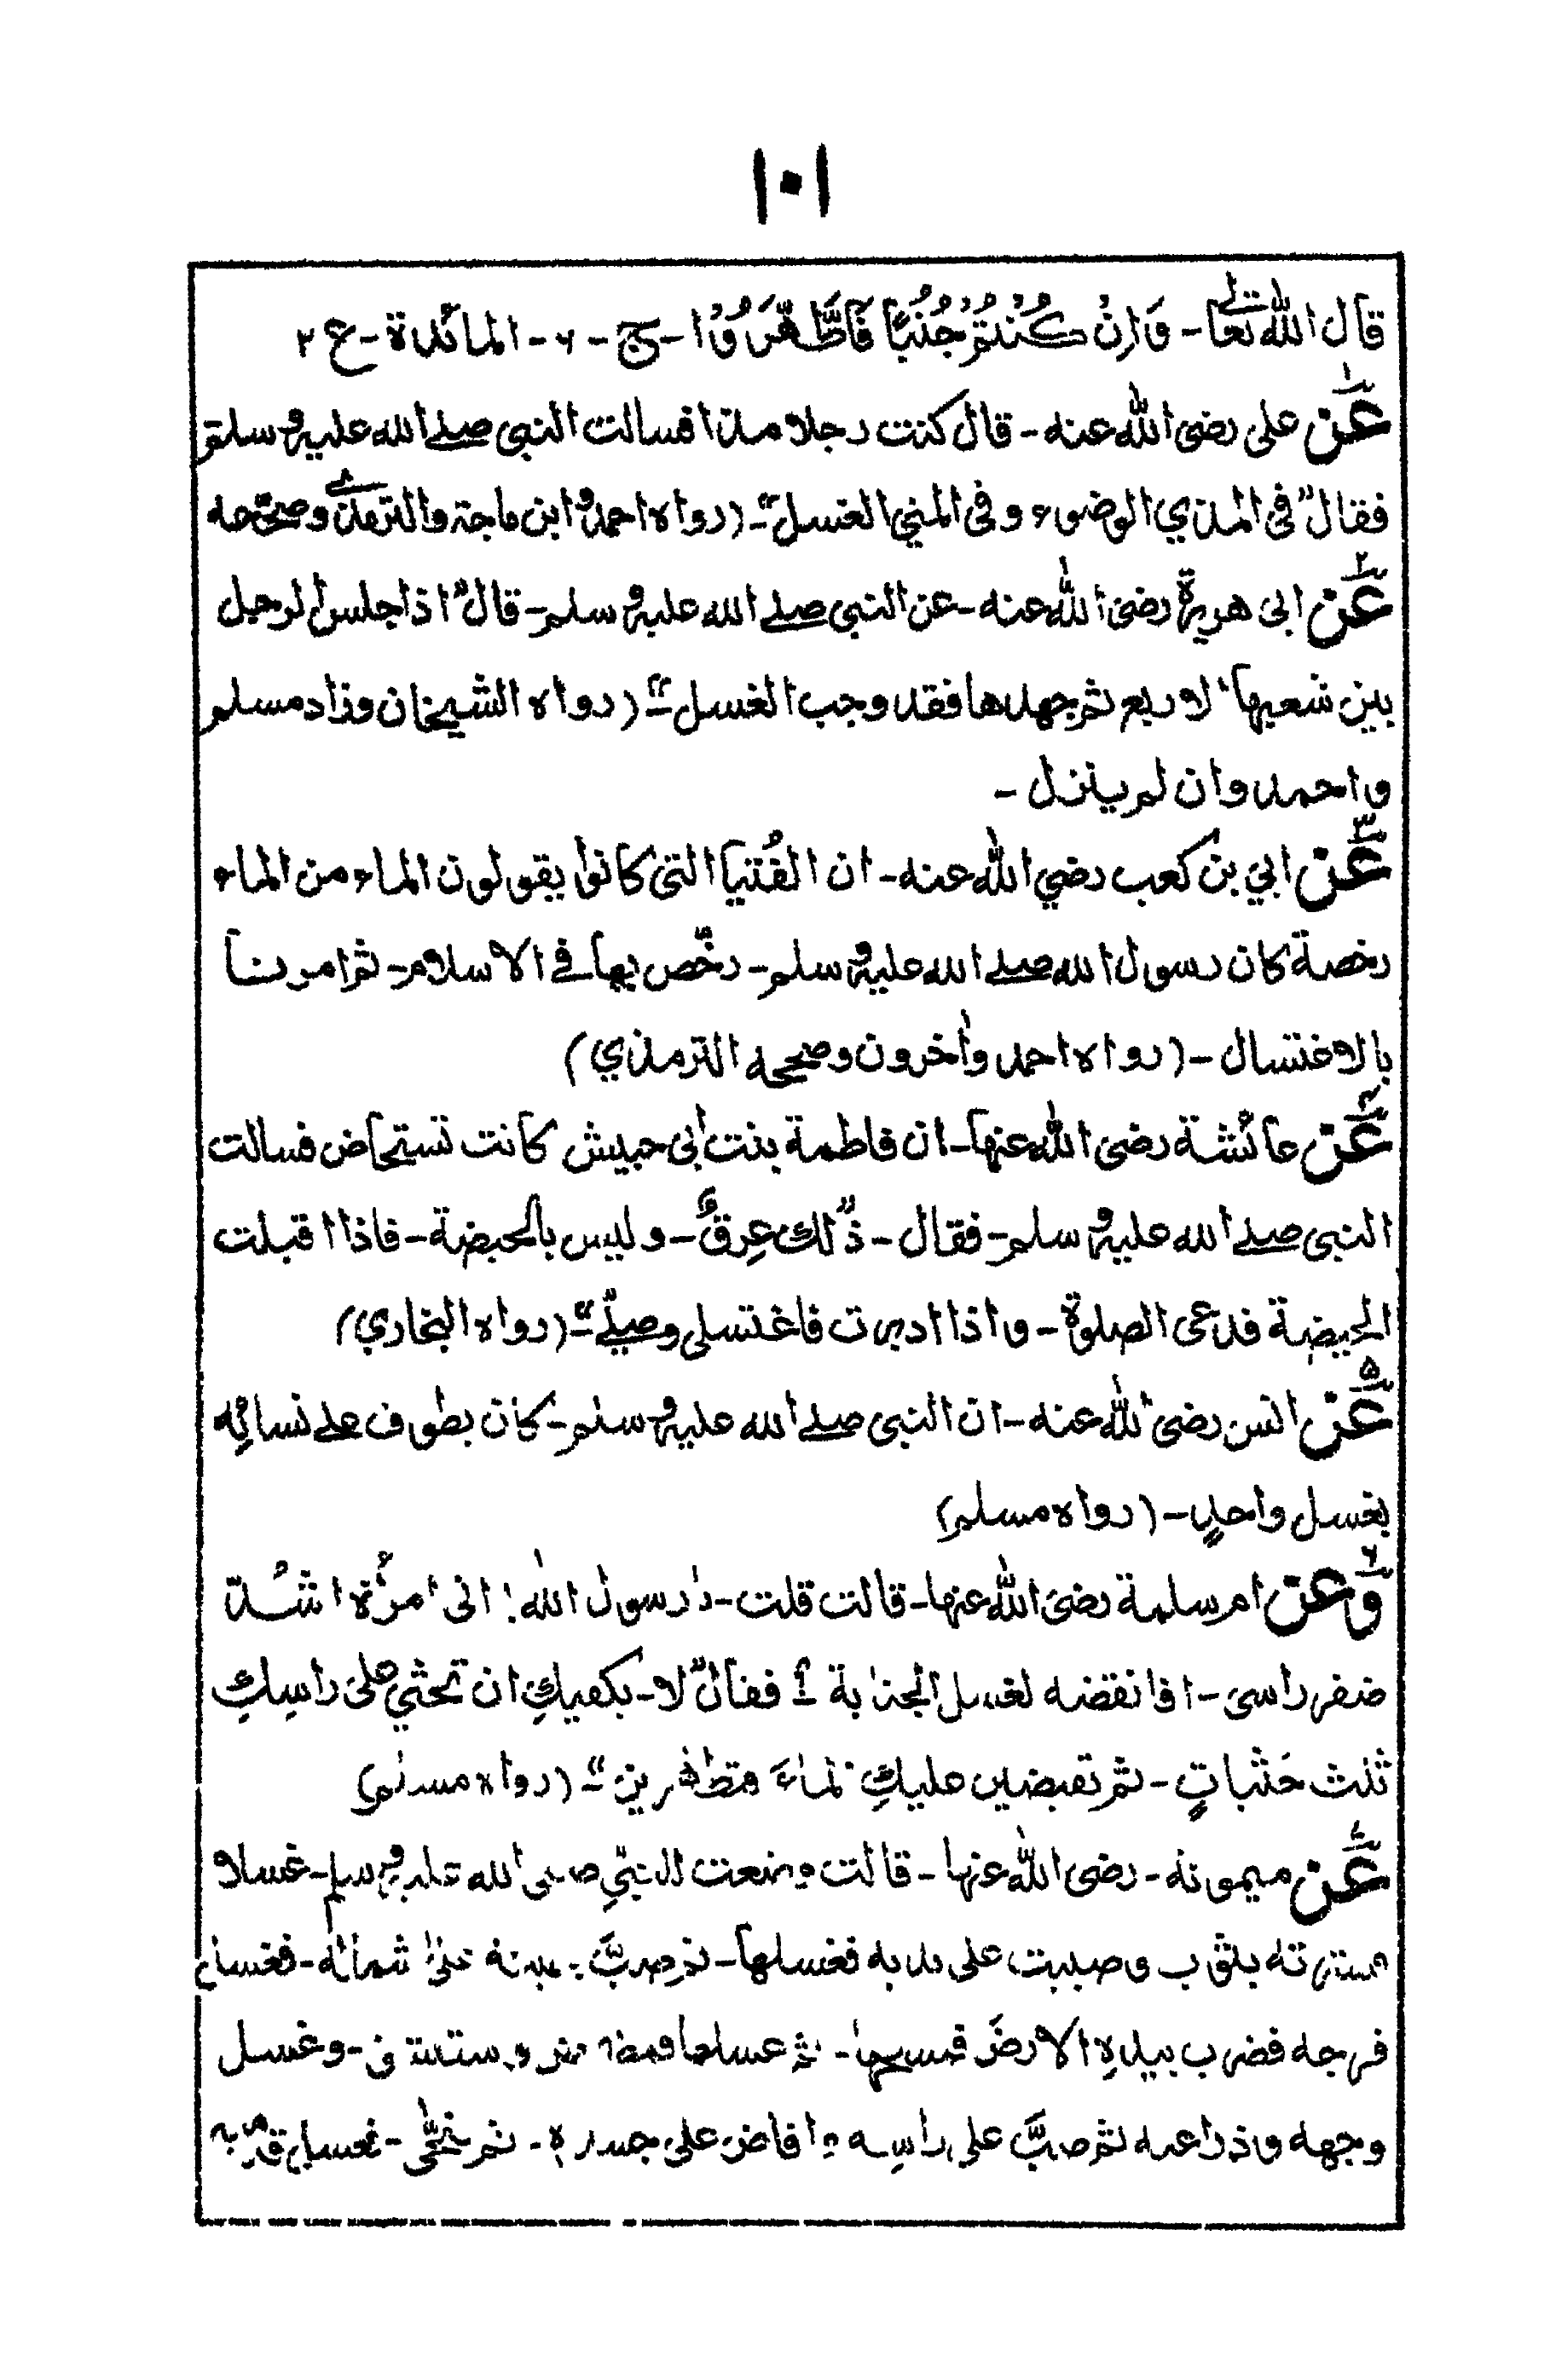 ١٠١
قال الله تعالى - وَاِنْ كُنْتُمْ جُنُبًا فَاطَّهَّرُوْا - ج - ٦ - المائدة - ع ٢
١ عن على رضى الله عنه - قال كنت رجلا مذا فسالت النبى صلے الله عليه وسلم
فقال "فى المذي الوضوء وفى المني الغسل" - (رواه احمد وابن ماجة والترمذی وصححه
٢ عن ابى هريرة رضى الله عنه - عن النبى صلے الله عليه وسلم - قال "اذا جلس الرجل
بين شعبها الاربع ثم جهدها فقد وجب الغسل" - (رواه الشيخان وزاد مسلم
واحمد وان لم ينزل -
٣ عن ابي بن كعب رضي الله عنه - ان الفُتيا التى كانوا يقولون الماء من الماء
رخصة كان رسول الله صلے الله عليه وسلم - رخّص بها فے الاسلام - ثم امرنا
بالاغتسال - (رواه احمد واٰخرون وصححه الترمذي)
٤ عن عائشة رضى الله عنها - ان فاطمة بنت ابى حبيش كانت تستحاض فسالت
النبى صلے الله عليه وسلم - فقال - "ذٰلك عِرقٌ - وليس بالحيضة - فاذا اقبلت
الحيضة فدعى الصلوة - واذا ادبرت فاغتسلى وصلّے" - (رواه البخاري)
٥ عن انس رضى الله عنه - ان النبى صلے الله عليه وسلم - كان يطوف علے نسائِه
بغسل واحدٍ - (رواه مسلم)
٦ وعن ام سلمة رضى الله عنها - قالت قلت - يا رسول الله! انى امرُءة اشُد
ضفر راسى - افانقضه لغسل الجنابة ؟ فقال "لا - يكفيكِ ان تحثي على راسِكِ
ثلث حَثياتٍ - ثم تفيضين عليكِ الماءَ فتطهرين" - (رواه مسلم)
٧ عن ميمونة - رضى الله عنها - قالت وضعت للنبّيِ صلى الله عليه وسلم - غسلا
فسترته بثوب وصببت على يديه فغسلها - ثم صبَّ بيمينه على شماله - فغسل
فرجه فضرب بيدهِ الارضَ فمسحها - ثم غسلها فمضمض واستنشق - وغسل
وجهه وذراعيه ثم صبَّ على راسِه وافاض على جسده - ثم تنحّى - فغسل قدميه